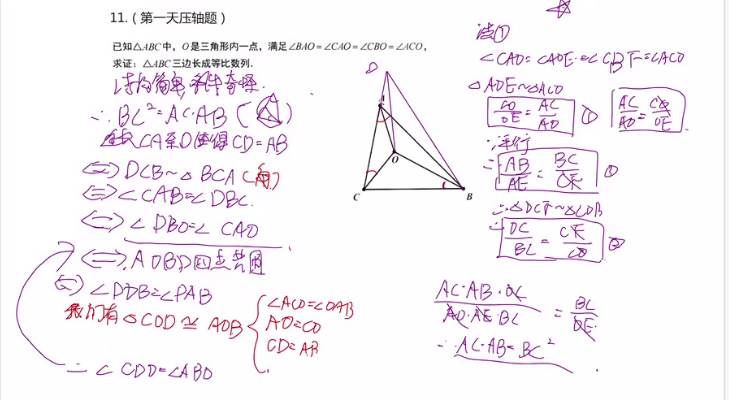 11.(第一天压轴题)
已知△ABC中,O是三角形内一点,满足∠BAO=∠CAO=∠CBO=∠ACO,
求证:△ABC三边长成等比数列.
∴ BC²=AC·AB
CA至D使得CD=AB
⟺ DCB~△BCA
⟺ ∠CAB=∠DBC.
⟺ ∠DBO=∠CAO
⟺ AOBD四点共圆
⟺ ∠DOB=∠DAB
我们有△COD≅AOB
∠ACO=∠OAB
AO=CO
CD=AB
∴ ∠CDO=∠ABO
D
A
O
C
B
法①
∠CAO=∠AOE=∠CBF=∠ACO
△AOE~△ACO
AC/AO=CO/OE
∵平行
∴ AB/AE=BC/OE ②
∴ DC/BC=CE/CO
AC·AB·OC/AO·AE·BC = BC/OE
∴ AC·AB=BC²